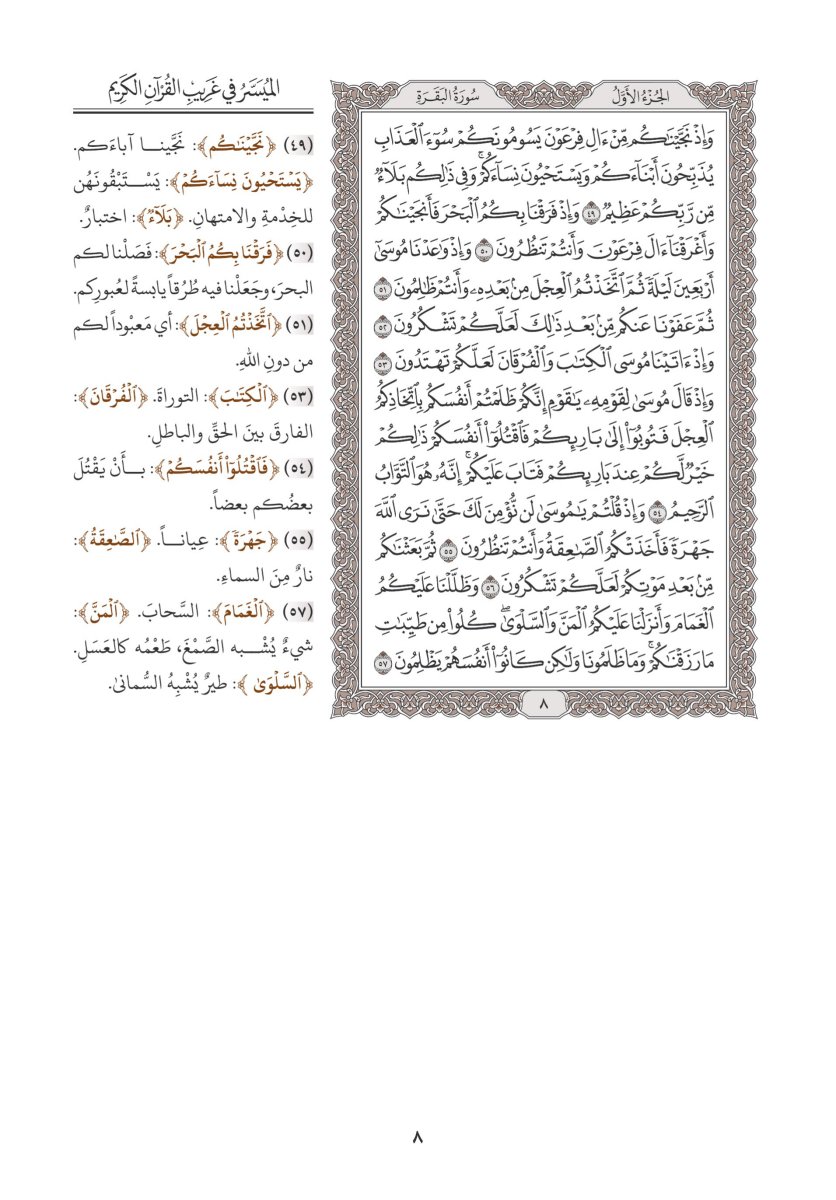 الجُزْءُ الأَوَّلُ
سُورَةُ البَقَرَةِ
وَإِذۡ نَجَّيۡنَٰكُم مِّنۡ ءَالِ فِرۡعَوۡنَ يَسُومُونَكُمۡ سُوٓءَ ٱلۡعَذَابِ
يُذَبِّحُونَ أَبۡنَآءَكُمۡ وَيَسۡتَحۡيُونَ نِسَآءَكُمۡۚ وَفِي ذَٰلِكُم بَلَآءٞ
مِّن رَّبِّكُمۡ عَظِيمٞ ٤٩ وَإِذۡ فَرَقۡنَا بِكُمُ ٱلۡبَحۡرَ فَأَنجَيۡنَٰكُمۡ
وَأَغۡرَقۡنَآ ءَالَ فِرۡعَوۡنَ وَأَنتُمۡ تَنظُرُونَ ٥٠ وَإِذۡ وَٰعَدۡنَا مُوسَىٰٓ
أَرۡبَعِينَ لَيۡلَةٗ ثُمَّ ٱتَّخَذۡتُمُ ٱلۡعِجۡلَ مِنۢ بَعۡدِهِۦ وَأَنتُمۡ ظَٰلِمُونَ ٥١
ثُمَّ عَفَوۡنَا عَنكُم مِّنۢ بَعۡدِ ذَٰلِكَ لَعَلَّكُمۡ تَشۡكُرُونَ ٥٢
وَإِذۡ ءَاتَيۡنَا مُوسَى ٱلۡكِتَٰبَ وَٱلۡفُرۡقَانَ لَعَلَّكُمۡ تَهۡتَدُونَ ٥٣
وَإِذۡ قَالَ مُوسَىٰ لِقَوۡمِهِۦ يَٰقَوۡمِ إِنَّكُمۡ ظَلَمۡتُمۡ أَنفُسَكُم بِٱتِّخَاذِكُمُ
ٱلۡعِجۡلَ فَتُوبُوٓاْ إِلَىٰ بَارِئِكُمۡ فَٱقۡتُلُوٓاْ أَنفُسَكُمۡ ذَٰلِكُمۡ
خَيۡرٞ لَّكُمۡ عِندَ بَارِئِكُمۡ فَتَابَ عَلَيۡكُمۡۚ إِنَّهُۥ هُوَ ٱلتَّوَّابُ
ٱلرَّحِيمُ ٥٤ وَإِذۡ قُلۡتُمۡ يَٰمُوسَىٰ لَن نُّؤۡمِنَ لَكَ حَتَّىٰ نَرَى ٱللَّهَ
جَهۡرَةٗ فَأَخَذَتۡكُمُ ٱلصَّٰعِقَةُ وَأَنتُمۡ تَنظُرُونَ ٥٥ ثُمَّ بَعَثۡنَٰكُم
مِّنۢ بَعۡدِ مَوۡتِكُمۡ لَعَلَّكُمۡ تَشۡكُرُونَ ٥٦ وَظَلَّلۡنَا عَلَيۡكُمُ
ٱلۡغَمَامَ وَأَنزَلۡنَا عَلَيۡكُمُ ٱلۡمَنَّ وَٱلسَّلۡوَىٰۖ كُلُواْ مِن طَيِّبَٰتِ
مَا رَزَقۡنَٰكُمۡۚ وَمَا ظَلَمُونَا وَلَٰكِن كَانُوٓاْ أَنفُسَهُمۡ يَظۡلِمُونَ ٥٧
٨
المُيَسَّرُ في غَرِيبِ القُرْآنِ الكَرِيمِ
(٤٩) ﴿نَجَّيۡنَٰكُم﴾: نَجَّينا آباءَكم.
﴿يَسۡتَحۡيُونَ نِسَآءَكُمۡ﴾: يَسْتَبْقُونَهُن
للخِدْمةِ والامتهانِ. ﴿بَلَآءٞ﴾: اختبارٌ.
(٥٠) ﴿فَرَقۡنَا بِكُمُ ٱلۡبَحۡرَ﴾: فَصَلْنا لكم
البحرَ، وجَعَلْنا فيه طُرُقاً يابسةً لعُبورِكم.
(٥١) ﴿ٱتَّخَذۡتُمُ ٱلۡعِجۡلَ﴾: أي مَعبُوداً لكم
من دونِ اللهِ.
(٥٣) ﴿ٱلۡكِتَٰبَ﴾: التوراةَ. ﴿ٱلۡفُرۡقَانَ﴾:
الفارقَ بينَ الحقِّ والباطلِ.
(٥٤) ﴿فَٱقۡتُلُوٓاْ أَنفُسَكُمۡ﴾: بأَنْ يَقْتُلَ
بعضُكم بعضاً.
(٥٥) ﴿جَهۡرَةٗ﴾: عِياناً. ﴿ٱلصَّٰعِقَةُ﴾:
نارٌ مِنَ السماءِ.
(٥٧) ﴿ٱلۡغَمَامَ﴾: السَّحابَ. ﴿ٱلۡمَنَّ﴾:
شيءٌ يُشْبِه الصَّمْغَ، طَعْمُه كالعَسَلِ.
﴿ٱلسَّلۡوَىٰ﴾: طيرٌ يُشْبِهُ السُّمانىٰ.
٨